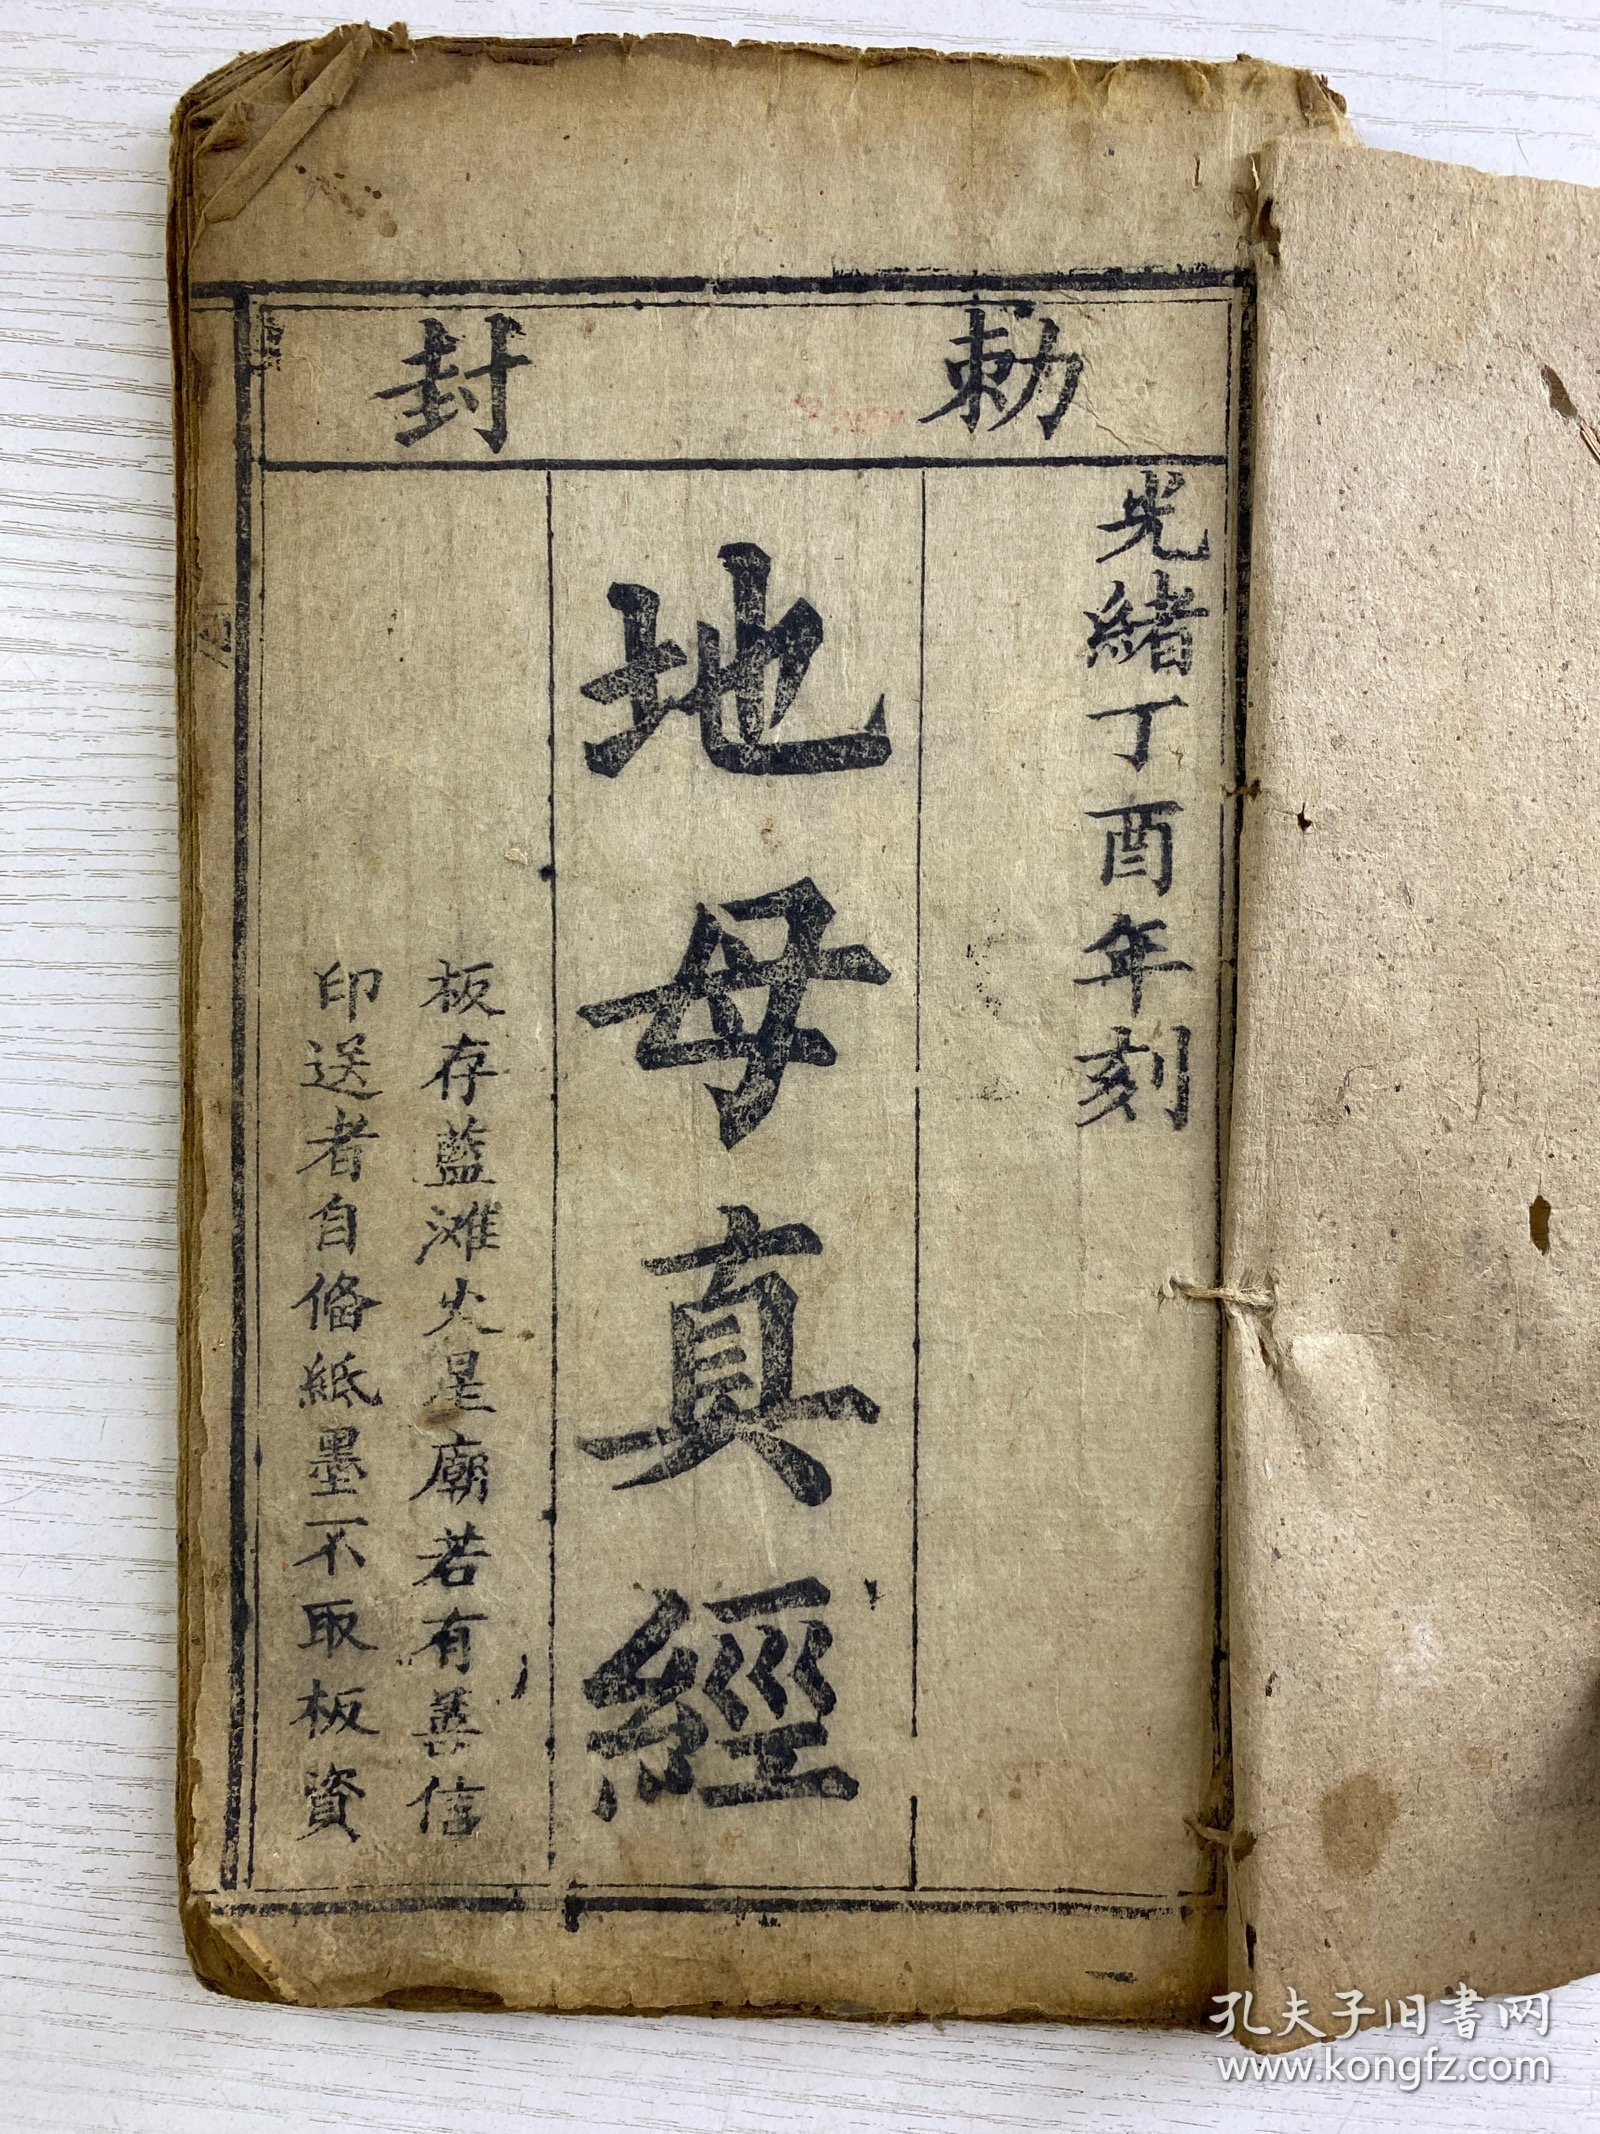 勅封
光緒丁酉年刻
地母真經
板存藍滩火星廟若有善信
印送者自俻紙墨不取板資
孔夫子旧书网
www.kongfz.com